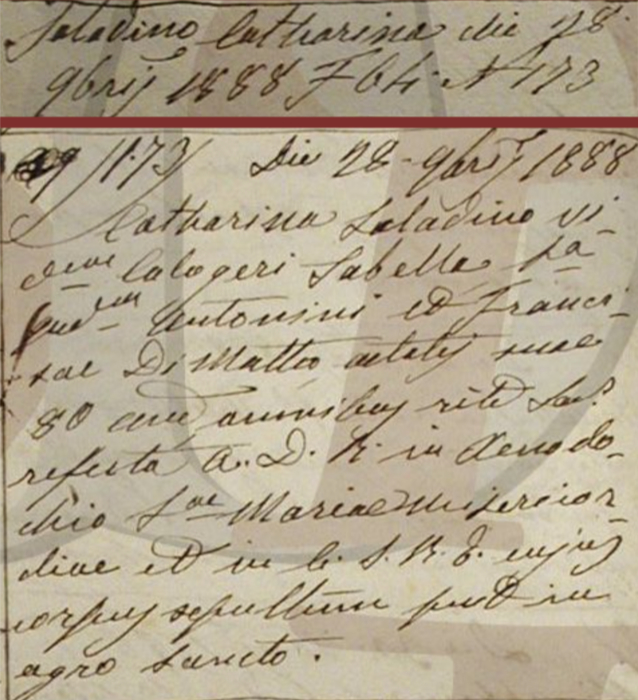 Saladino Catharina die 28
9bris 1888 F 64. N 173
173 Die 28 9bris 1888
Catharina Saladino vi-
dua Calogeri Sabella fa
qudm Antonini et Franci-
scae Di Matteo aetatis suae
80 cum omnibus rite Sac.
refecta A. D. R. in Xenodo-
chio Sae Mariae Misericor-
diae et in C. S. M. E. cujus
corpus sepultum fuit in
agro sancto.